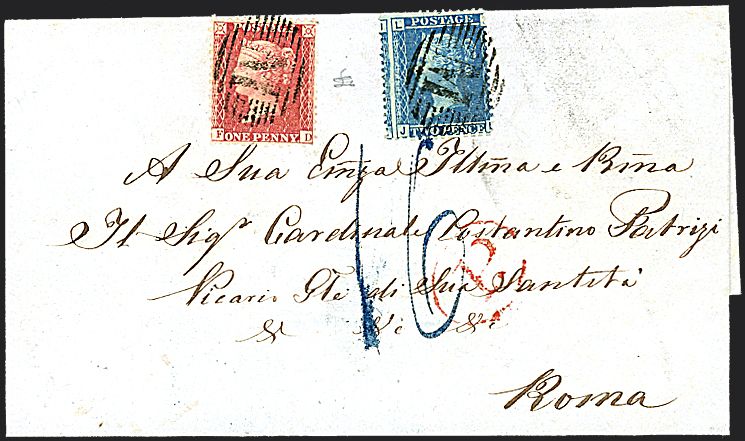 F D
ONE PENNY
I L
POSTAGE
J L
TWO PENCE
A Sua Emza Illma e Rma
Il Sigr Cardinale Costantino Patrizi
Vicario Gle di Sua Santità
& &c &c
Roma
16